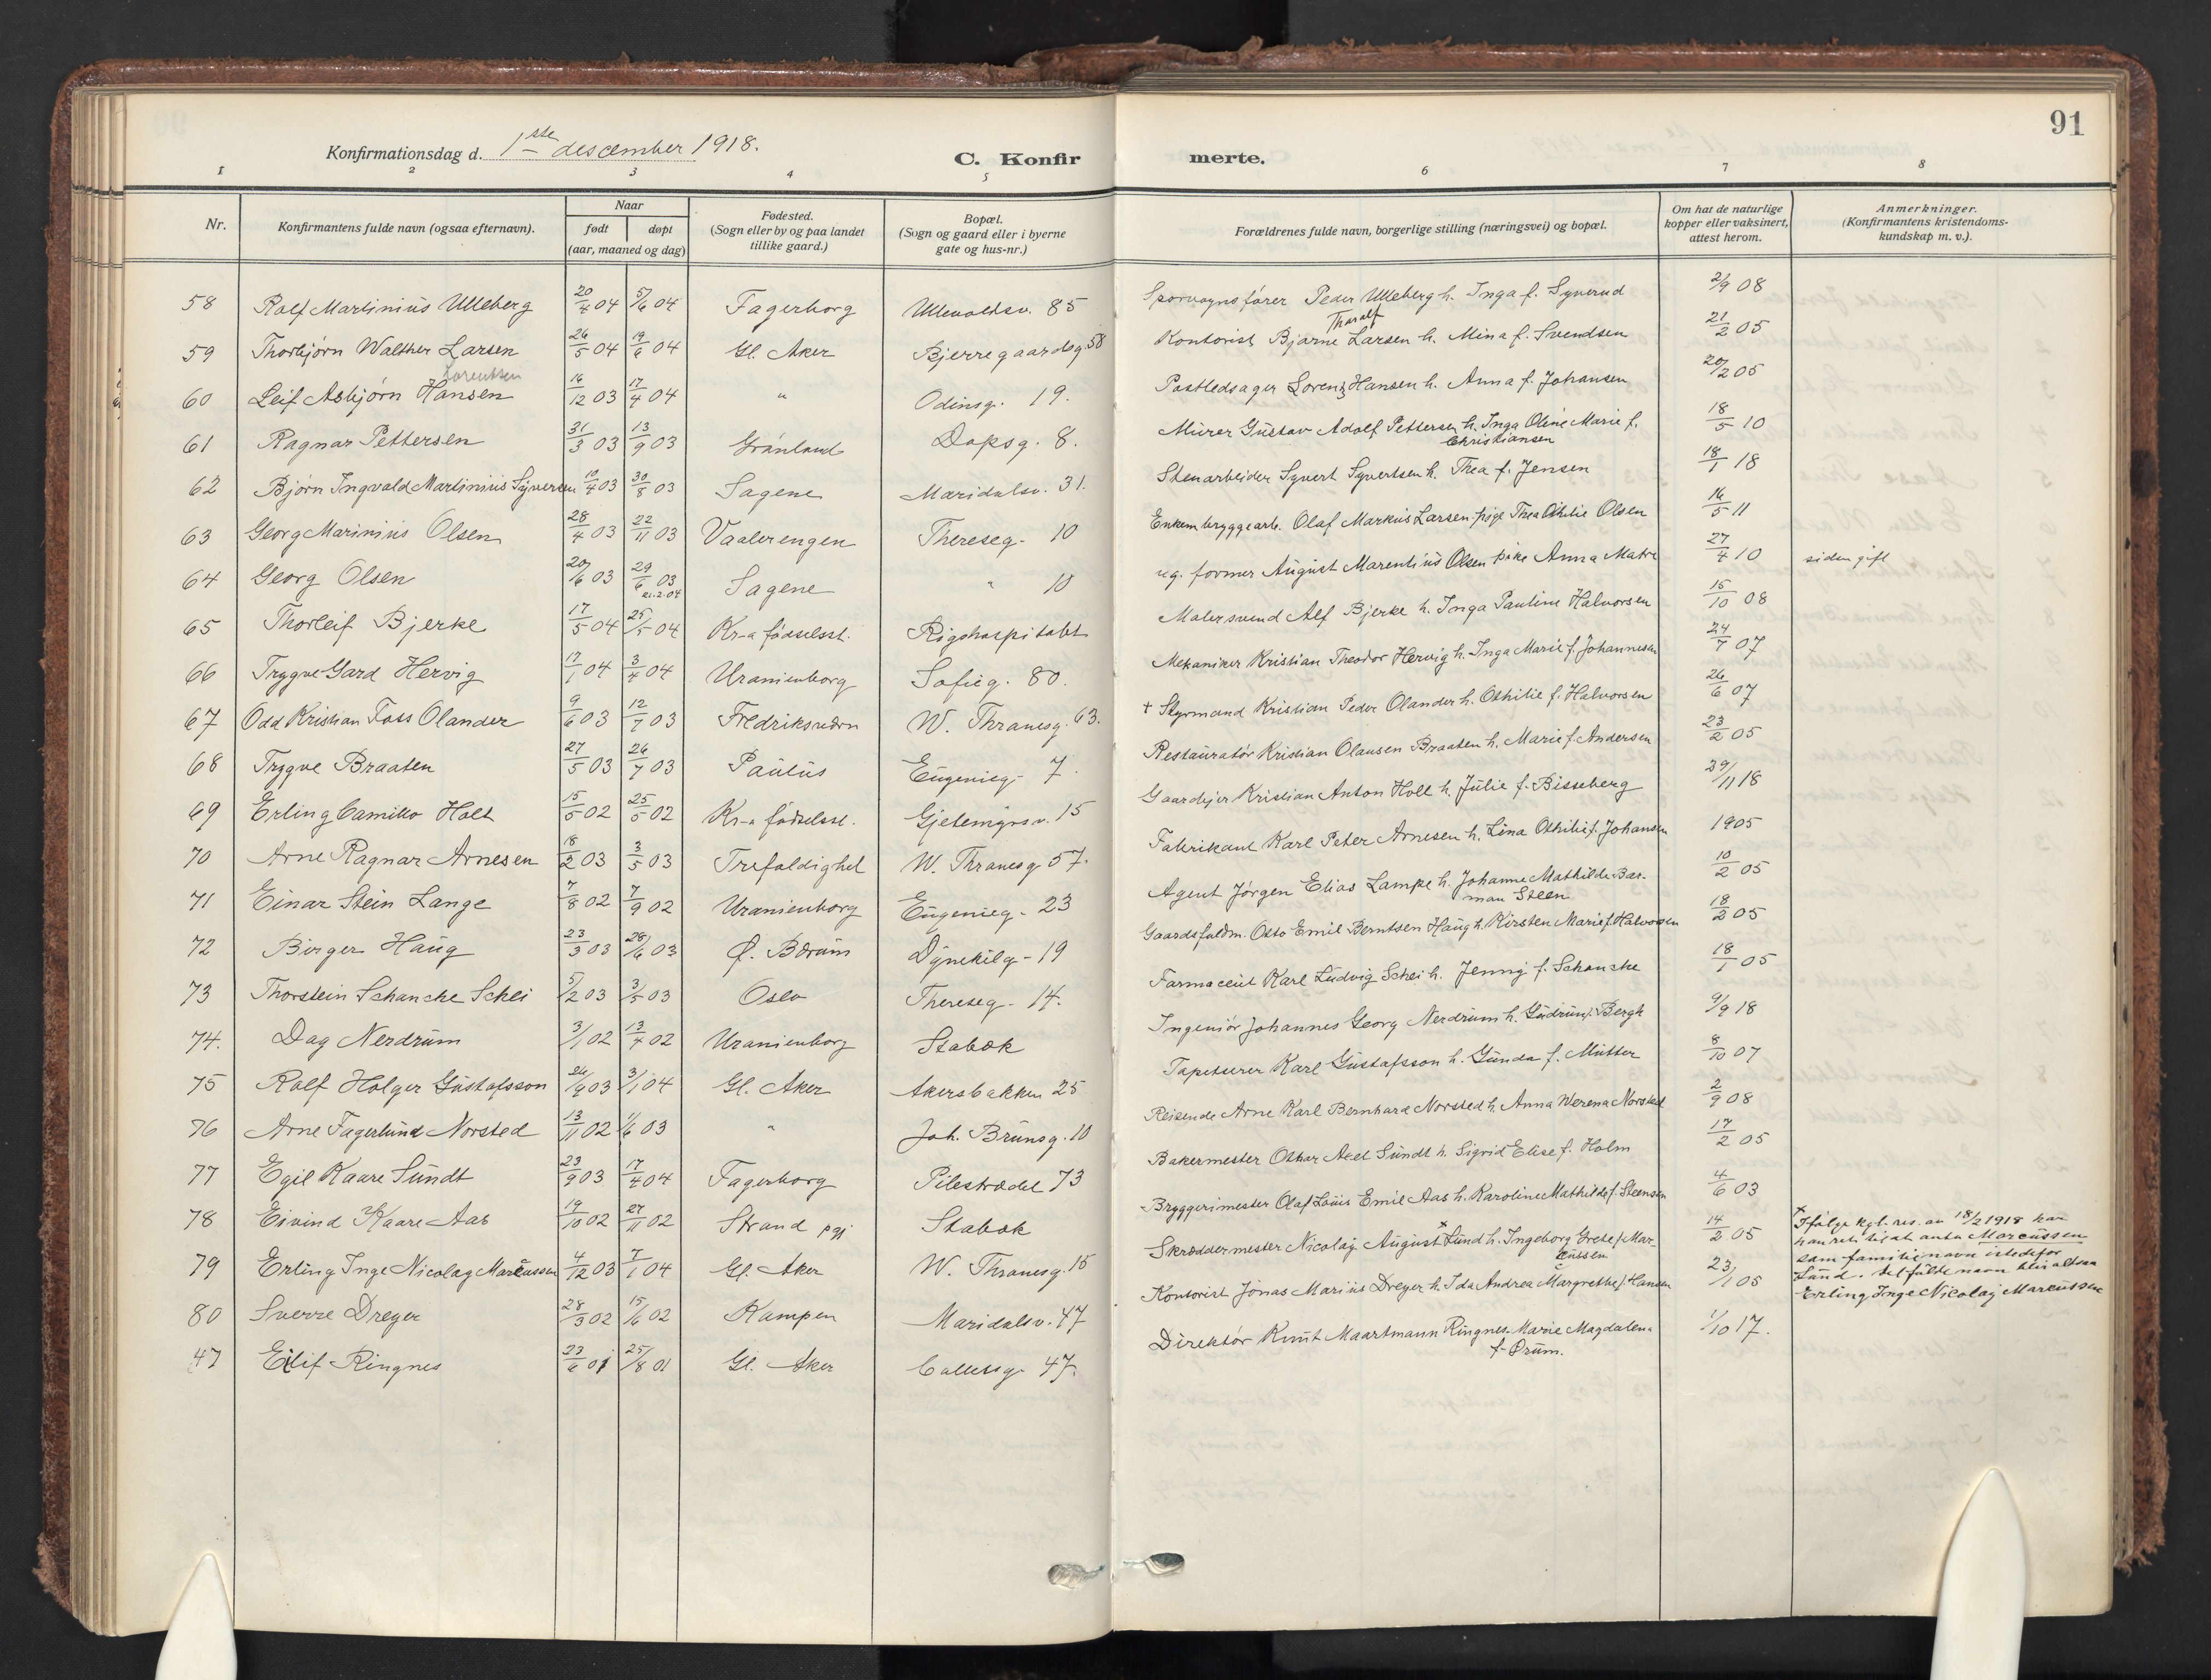 91
Konfirmationsdag d. 1ste descember 1918.
C. Konfir
merte.
1 2 3 4 5 6 7 8
Nr.
Konfirmantens fulde navn (ogsaa efternavn).
Naar
født
døpt
(aar, maaned og dag)
Fødested.
(Sogn eller by og paa landet
tillike gaard.)
Bopæl.
(Sogn og gaard eller i byerne
gate og hus-nr.)
Forældrenes fulde navn, borgerlige stilling (næringsvei) og bopæl.
Om hat de naturlige
kopper eller vaksinert,
attest herom.
Anmerkninger.
(Konfirmantens kristendoms-
kundskap m. v.).
58 Rolf Martinius Ulleberg 20/4 04 5/6 04 Fagerborg Ullevoldsv. 85 Sporvognsfører Peder Ulleberg h. Inga f. Syverud 2/9 08
Tharalf
59 Thorbjørn Walther Larsen 26/5 04 19/6 04 Gl. Aker Bjerregaardsg. 58 Kontorist Bjarne Larsen h. Mina f. Svendsen 21/2 05
Lorentsen
60 Leif Asbjørn Hansen 16/12 03 17/4 04 " Odinsg. 19. Postledsager Lorenz Hansen h. Anna f. Johansen 20/2 05
61 Ragnar Pettersen 31/3 03 13/9 03 Grønland Dopsg. 8. Murer Gustav Adolf Pettersen h. Inga Oline Marie f.
Christiansen 18/5 10
62 Bjørn Ingvald Martinius Syversen 10/4 03 30/8 03 Sagene Maridalsv. 31. Stenarbeider Syvert Syvertsen h. Thea f. Jensen 18/1 18
63 Georg Marinius Olsen 28/4 03 22/11 03 Vaalerengen Thereseg. 10 Enkem. bryggearb. Olaf Markus Larsen. pige Thea Othilie Olsen 16/5 11
64 Georg Olsen 20/6 03 29/6 03 Sagene " 10 ug. former August Marentius Olsen pike Anna 27/4 10 siden gift
21.2.04
65 Thorleif Bjerke 17/5 04 25/5 04 Kr-a fødselsst. Rigshospitalet Malersvend Alf Bjerke h. Inga Pauline Halvorsen 15/10 08
66 Trygve Gard Hervig 17/1 04 3/4 04 Uranienborg Sofieg. 80. Mekaniker Kristian Theodor Hervig h. Inga Marie f. Johannesen 24/7 07
67 Odd Kristian Foss Olander 9/6 03 12/7 03 Fredriksværn W. Thranesg. 63. † Styrmand Kristian Peder Olander h. Othilie f. Halvorsen 26/6 07
68 Trygve Braaten 27/5 03 26/7 03 Paulus Eugenieg. 7. Restauratør Kristian Olausen Braaten h. Marie f. Andersen 23/2 05
69 Erling Camillo Holt 15/5 02 25/5 02 Kr-a fødselsst. Gjetemyrsv. 15 Gaardejer Kristian Anton Holt h. Julie f. Bisseberg 29/11 18
70 Arne Ragnar Arnesen 18/2 03 3/5 03 Trefoldighet W. Thranesg 57. Fabrikant Karl Peter Arnesen h. Lina Othilie f. Johansen 1905
71 Einar Stein Lange 7/8 02 7/9 02 Uranienborg Eugenieg. 23 Agent Jørgen Elias Lampe h. Johanne Mathilde Bar-
man Steen 10/2 05
72 Birger Haug 23/3 03 28/6 03 Ø. Bærum Dynekilg. 19 Gaardsfuldm. Otto Emil Berntsen Haug h. Kirsten Marie f. Halvorsen 18/2 05
73 Thorstein Schanche Schei 5/2 03 3/5 03 Oslo Thereseg. 14. Farmaceut Karl Ludvig Schei h. Jenny f. Schanche 18/1 05
74. Dag Nerdrum 3/1 02 13/4 02 Uranienborg Stabæk Ingeniør Johannes Georg Nerdrum h. Gudrun f. Bergh 9/9 18
75 Rolf Holger Gustafsson 26/9 03 3/1 04 Gl. Aker Akersbakken 25 Tapetserer Karl Gustafsson h. Gunda f. Mütter 8/10 07
76 Arne Fagerlund Norsted 13/11 02 1/6 03 " Joh. Brunsg. 10 Reisende Arne Karl Bernhard Norsted h. Anna Werena Norsted 2/9 08
77 Egil Kaare Sundt 23/9 03 17/4 04 Fagerborg Pilestrædet 73 Bakermester Othar Axel Sundt h. Sigrid Elise f. Holm 17/2 05
78 Eivind Kaare Aas 19/10 02 27/11 02 Strand pgj Stabæk Bryggerimester Olaf Louis Emil Aas h. Karoline Mathilde f. Steensen 4/6 03
79 Erling Inge Nicolay Marcussen 4/12 03 7/1 04 Gl. Aker W. Thranesg. 15 Skræddermester Nicolay August × Lund h. Ingeborg Grete f. Mar-
cussen 14/2 05
× Ifølge kgl. res. av 18/2 1918 har
han ret til at anta Marcussen
som familienavn istedefor
Lund. Det fulde navn blir altsaa
Erling Inge Nicolay Marcussen
80 Sverre Dreyer 28/3 02 15/6 02 Kampen Maridalsv. 47 Kontorist Jonas Marius Dreyer h. Ida Andrea Margrethe f. Hansen 23/1 05
47 Eilif Ringnes 23/6 01 25/8 01 Gl. Aker Collettsg. 47. Direktør Knut Maartmann Ringnes. Marie Magdalena
f. Ørum. 1/10 17.